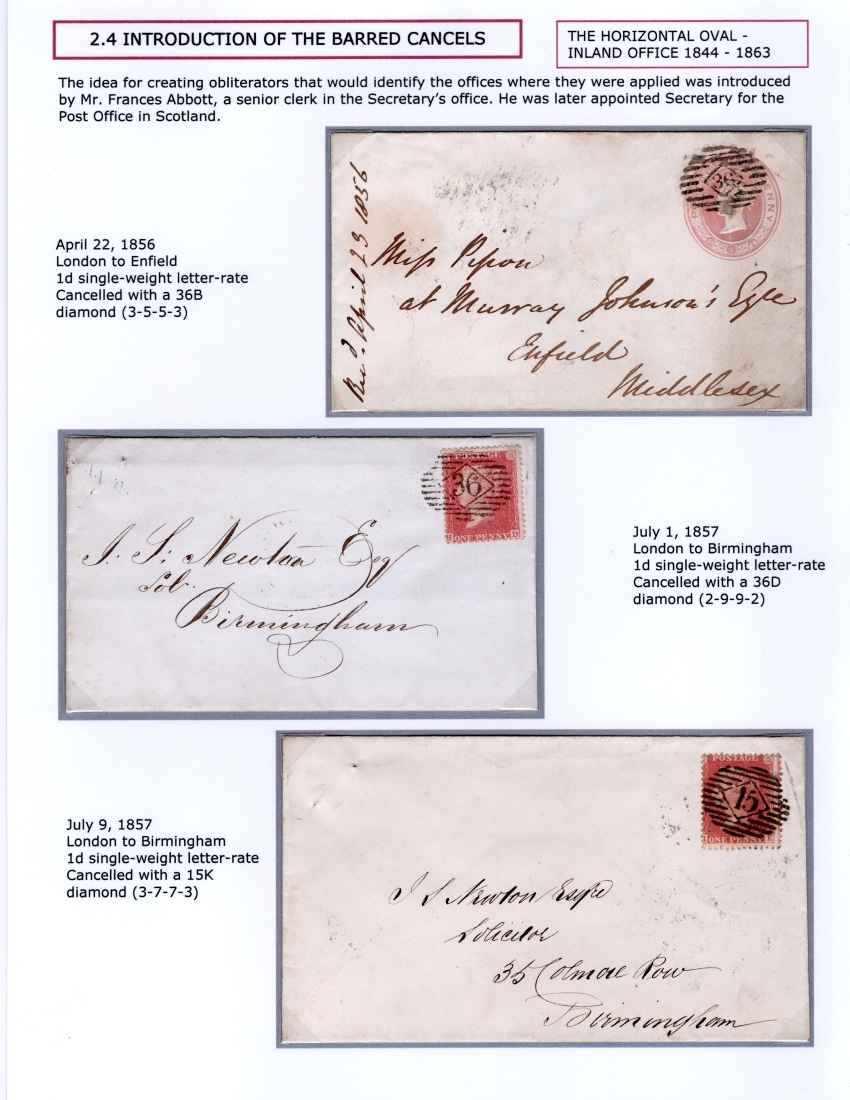 2.4 INTRODUCTION OF THE BARRED CANCELS
THE HORIZONTAL OVAL -
INLAND OFFICE 1844 - 1863
The idea for creating obliterators that would identify the offices where they were applied was introduced
by Mr. Frances Abbott, a senior clerk in the Secretary's office. He was later appointed Secretary for the
Post Office in Scotland.
April 22, 1856
London to Enfield
1d single-weight letter-rate
Cancelled with a 36B
diamond (3-5-5-3)
Rec.d April 23 1856
36
Miss Pipon
at Murray Johnson's Eqre
Enfield
Middlesex
POSTAGE
36
ONE PENNY D
J. S. Newton Esq
Sol.
Birmingham
July 1, 1857
London to Birmingham
1d single-weight letter-rate
Cancelled with a 36D
diamond (2-9-9-2)
July 9, 1857
London to Birmingham
1d single-weight letter-rate
Cancelled with a 15K
diamond (3-7-7-3)
POSTAGE
15
ONE PENNY
J S Newton Esqre
Solicitor
35 Colmore Row
Birmingham